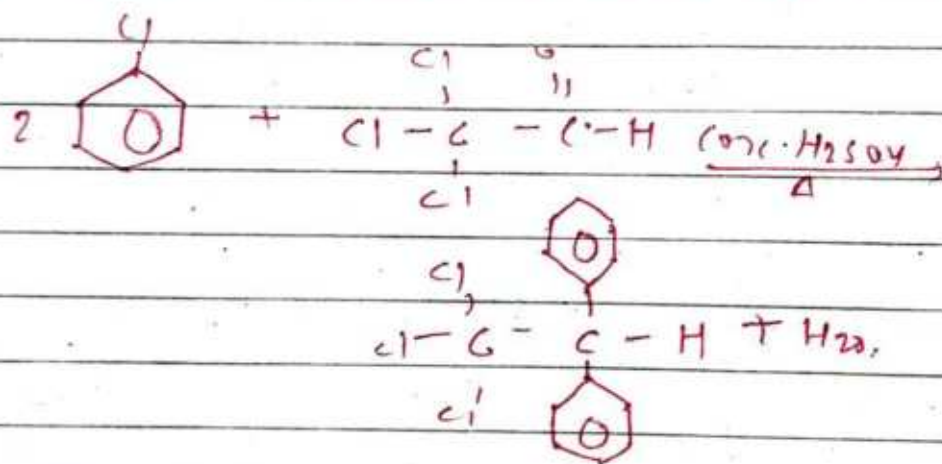 Cl
Cl O
2 + Cl - C - C - H Conc. H2SO4
Cl Δ
Cl
Cl - C - C - H + H2O.
Cl